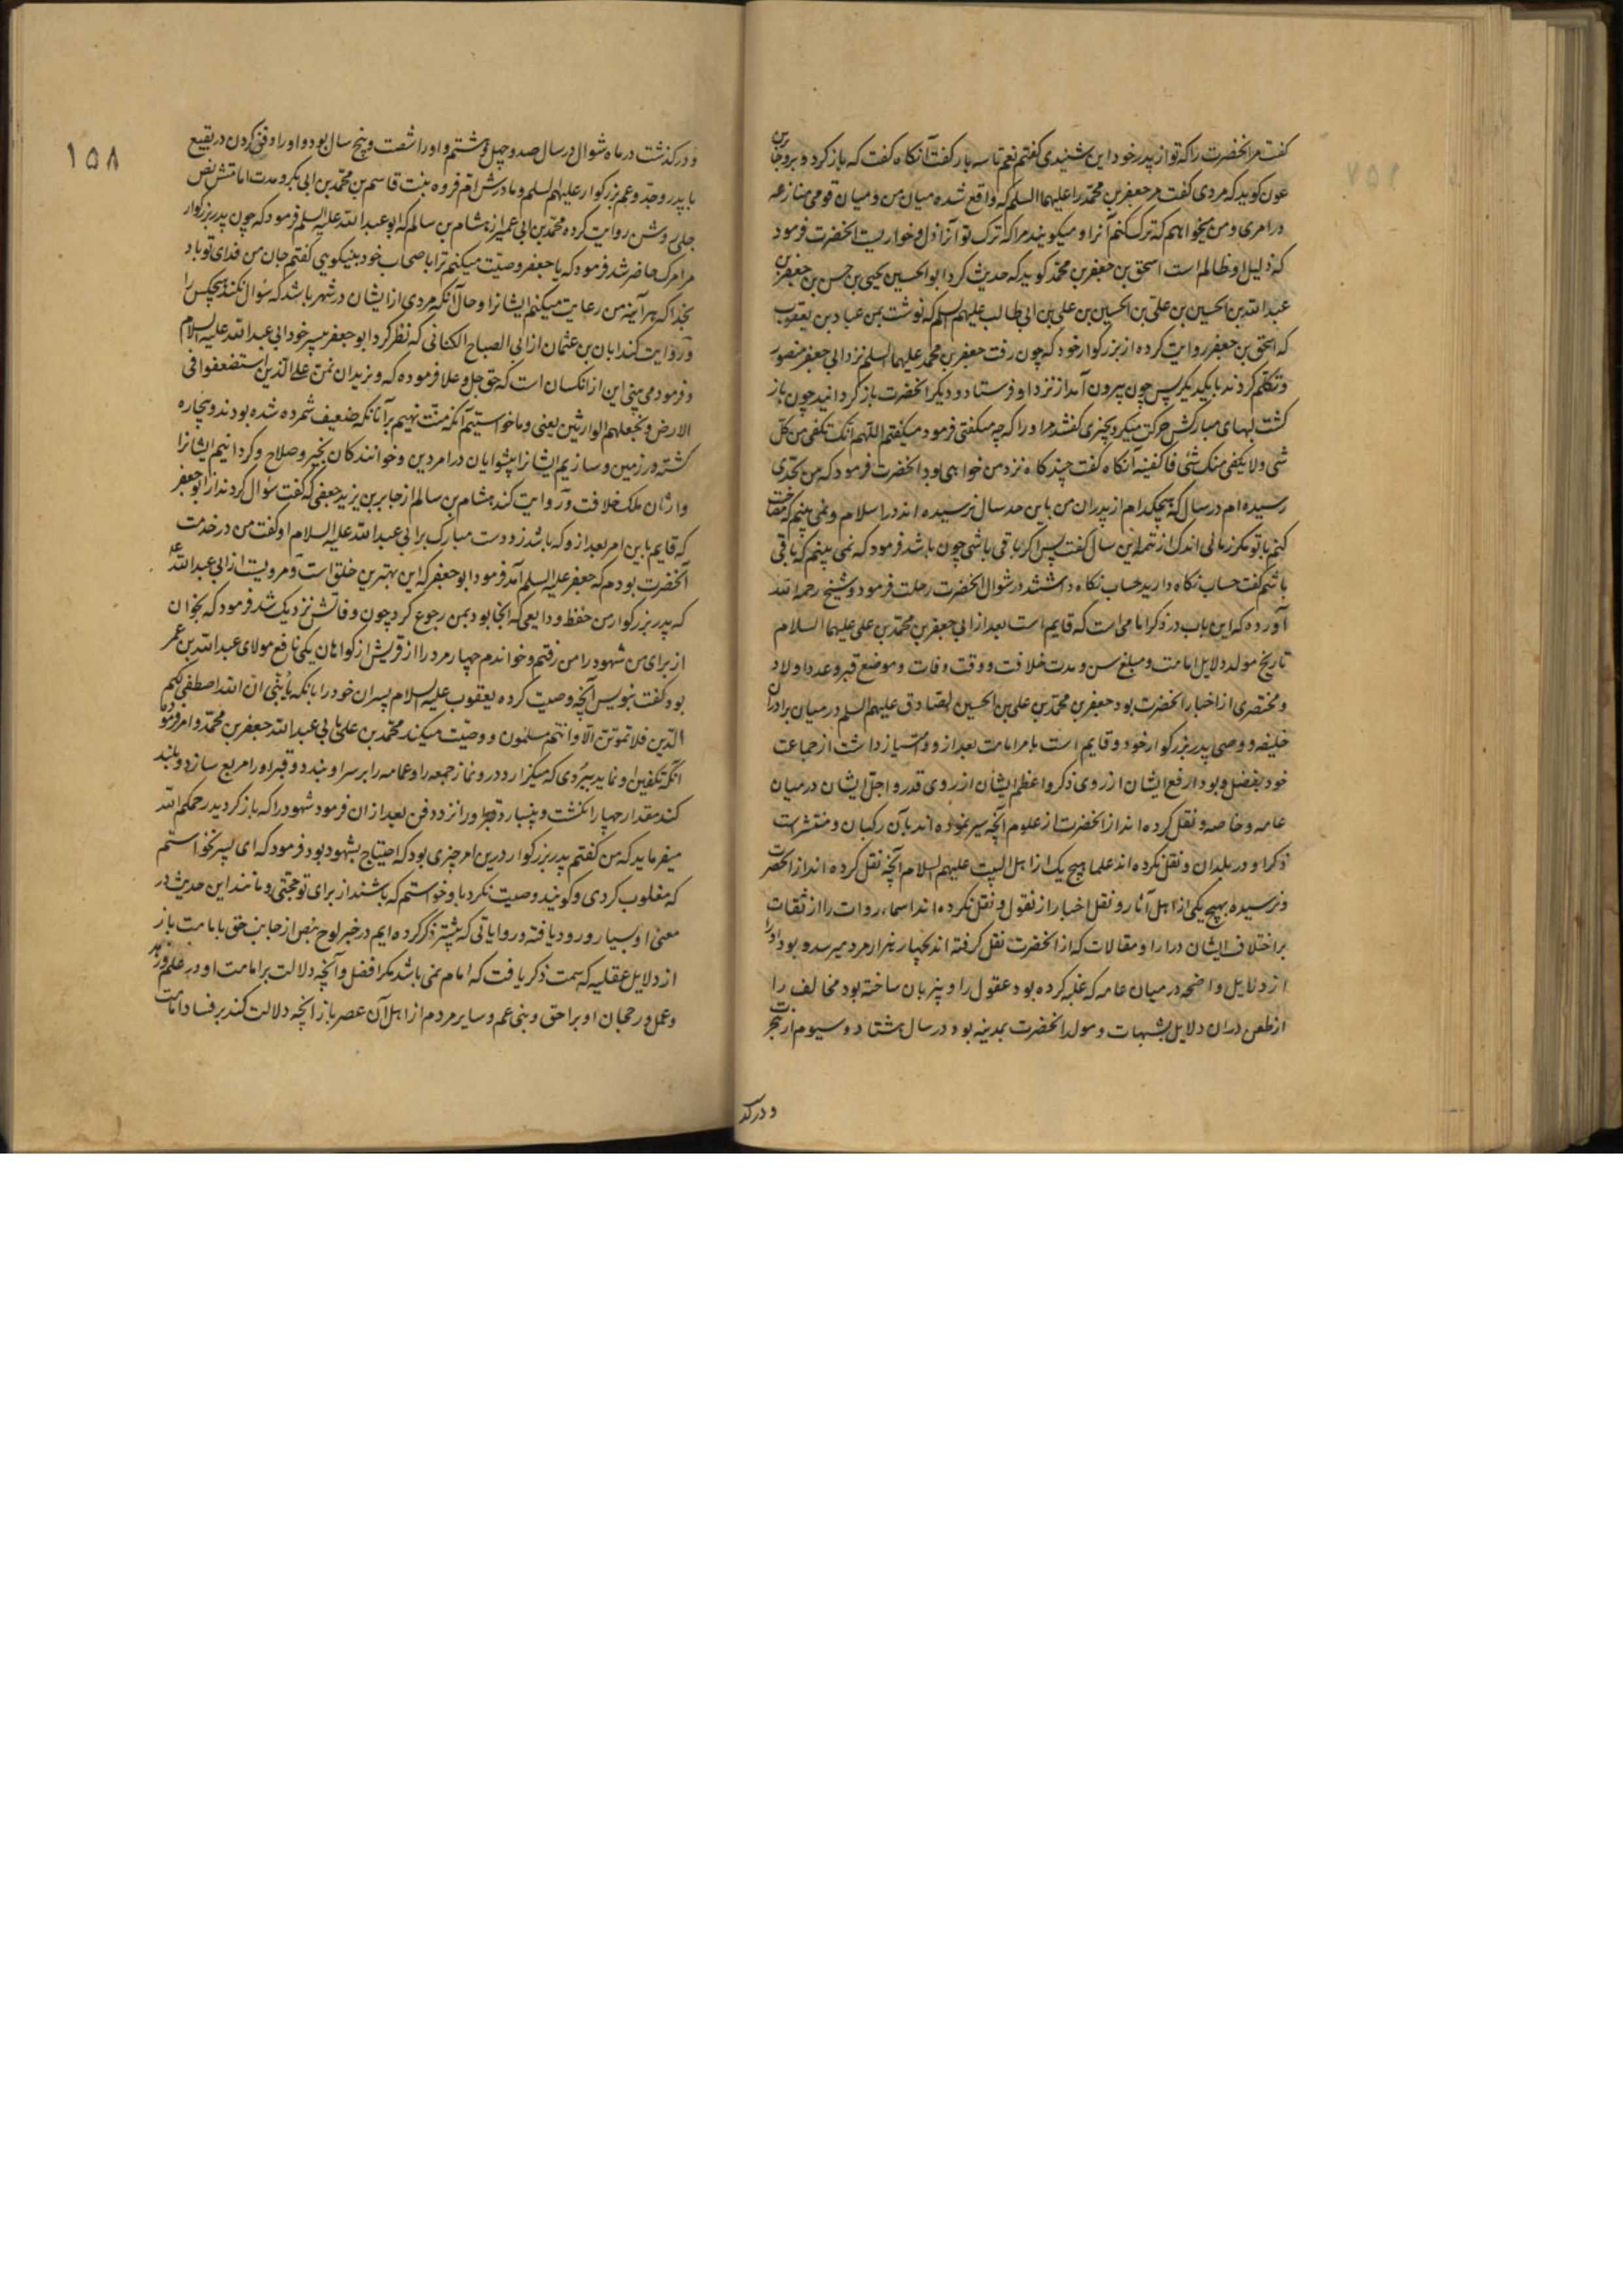 گفت مر انحضرت را که تو از پدر خود این شنیدی گفتم نعم تا سه بار گفت آنکاه گفت که باز کرد و برو جابر بن
عون کوید که مردی گفت مر جعفر بن محمد را علیهما السلم که واقع شده میان من و میان قومی منازعه
در امری و من میخواهم که ترک کنم آنرا و میکویند مرا که ترک تو آنرا ذل و خواریست انحضرت فرمود
که ذلیل او ظالم است اسحق بن جعفر بن محمد کوید که حدیث کرد ابو الحسین یحیی بن حسن بن جعفر بن
عبد الله بن الحسین بن علی بن الحسین بن علی بن ابی طالب علیهم السلم که نوشت بمن عباد بن یعقوب
که اسحق بن جعفر روایت کرده از بزرکوار خود که چون رفت جعفر بن محمد علیهما السلم نزد ابی جعفر منصور
و تکلم کردند با یکدیکر پس چون بیرون آمد از نزد او فرستاد و دیکر انحضرت باز کردانید چون باز
کشت لبهای مبارکش حرکت میکرد بچیزی کفتند مر او را که چه میکفتی فرمود میکفتم اللهم انک تکفی من کل
شی ولا یکفی منک شی فاکفینه آنکاه گفت چند کاه نزد من خواهی بود انحضرت فرمود که من بحدی
رسیده ام در سال که هیچکدام از پدران من باین حد سال نرسیده اند در اسلام و نمی بینم که مصاحبت
کنم با تو مکر زمانی اندک از تتمه این سال کفت پس اکر باقی باشی چون باشد فرمود که نمی بینم که باقی
باشم کفت حساب نکاه دارید حساب نکاه داشتند در شوال انحضرت رحلت فرمود و شیخ رحمه الله
آورده که این باب در ذکر امامی است که قایم است بعد از ابی جعفر بن محمد بن علی علیهما السلام
تاریخ مولد و دلایل امامت و مبلغ سن و مدت خلافت و وقت وفات و موضع قبر و عدد اولاد
و مختصری از اخبار انحضرت بود جعفر بن محمد بن علی بن الحسین الصادق علیهم السلم در میان برادران
خلیفه و وصی پدر بزرکوار خود و قایم است بامر امامت بعد از و و امتیاز داشت از جماعت
خود بفضل و بود ارفع ایشان از روی ذکر و اعظم ایشان از روی قدر و اجل ایشان در میان
عامه و خاصه و نقل کرده اند از انحضرت از علوم آنچه سیر نموده اند بآن رکبان و منتشرات
ذکر او در بلدان و نقل نکرده اند علما هیچ یک از اهل البیت علیهم السلام آنچه نقل کرده اند از انحضرت
و نرسیده بهیچ یکی از اهل آثار و نقل اخبار از نقول و نقل نکرده اند اسماء روات را از ثقات
بر اختلاف ایشان در ارا و مقالات که از انحضرت نقل کرفته اند بچهار هزار مرد میرسد و بود او را
از دلایل واضحه در میان عامه که غلبه کرده بود عقول را و بیزبان ساخته بود مخالف را
از طعن در ان دلایل بشبهات و مولد انحضرت بمدینه بود در سال هشتاد و سیوم از هجرت
و در کذ
۱۵۸
و در کذشت در ماه شوال در سال صد و چهل و هشتم و او را شصت و پنج سال بود و او را دفن کردن در بقیع
با پدر و جد و عم بزرکوار علیهم السلم و مادرش ام فروه بنت قاسم بن محمد بن ابی بکر و مدت امامتش نص
جلی روشن روایت کرده محمد بن ابی عمیر از هشام بن سالم که ابو عبد الله علیه السلم فرمود که چون پدر بزرکوار
مرا مرک حاضر شد فرمود که یا جعفر وصیت میکنم ترا باصحاب خود بنیکویی کفتم جان من فدای تو باد
بخدا که هر آینه من رعایت میکنم ایشانرا و حال آنکه مردی از ایشان در شهر باشد که سؤال نکند هیچکس را
و روایت کند ابان بن عثمان از ابی الصباح الکنانی که نظر کرد ابو جعفر بپسر خود ابی عبد الله علیه السلام
و فرمود می بینی این از انکسان است که حق جل و علا فرموده که و نرید ان نمن علی الذین استضعفوا فی
الارض و نجعلهم الوارثین یعنی و ما خواستیم آنکه منت نهیم بر آنانکه ضعیف شمرده شده بودند و بیچاره
کشته در زمین و سازیم ایشانرا پیشوایان در امر دین و خوانندکان بخیر و صلاح و کردانیم ایشانرا
وارثان ملک خلافت و روایت کند هشام بن سالم از جابر بن یزید جعفی که کفت سؤال کردند از ابو جعفر
که قایم باین امر بعد از و که باشد زد دست مبارک بر ابی عبد الله علیه السلام او کفت من در خدمت
آنحضرت بودم که جعفر علیه السلم آمد فرمود ابو جعفر که این بهترین خلق است و مرویست از ابی عبد الله ع
که پدر بزرکوار من حفظ ودایعی که انجا بود بمن رجوع کرد چون وفاتش نزدیک شد فرمود که بخوان
از برای من شهود را من رفتم و خواندم چهار مرد را از قریش از کواهان یکی نافع مولای عبد الله بن عمر
بود کفت بنویس آنچه وصیت کرده یعقوب علیه السلام پسران خود را بانکه یا بنی ان الله اصطفی لکم
الدین فلا تموتن الا و انتم مسلمون و وصیت میکند محمد بن علی بابی عبد الله جعفر بن محمد و امر فرمود
آنکه تکفین او نماید ببردی که میکزارد در و نماز جمعه را و عمامه را بر سر او بندد و قبر او را مربع سازد و بلند
کند مقدار چهار انکشت و بنیارد قبر او را نزد دفن بعد از ان فرمود شهود را که باز کردید رحمکم الله
میفرماید که من کفتم پدر بزرکوار درین امر چیزی بود که احتیاج بشهود بود فرمود که ای پسر نخواستم
که مغلوب کردی و کویند وصیت نکرد باو خواستم که باشند از برای تو حجتی و مانند این حدیث در
معنی او بسیار ورود یافته و روایاتی که پیشتر ذکر کرده ایم در خبر لوح بنص از جانب حق بامامت باز
از دلایل عقلیه که سمت ذکر یافت که امام نمی باشد مکر افضل و آنچه دلالت بر امامت او در علم و زهد
و عمل و رجحان او براحق و بنی عم و سایر مردم از اهل آن عصر باز آنچه دلالت کند بر فساد امامت